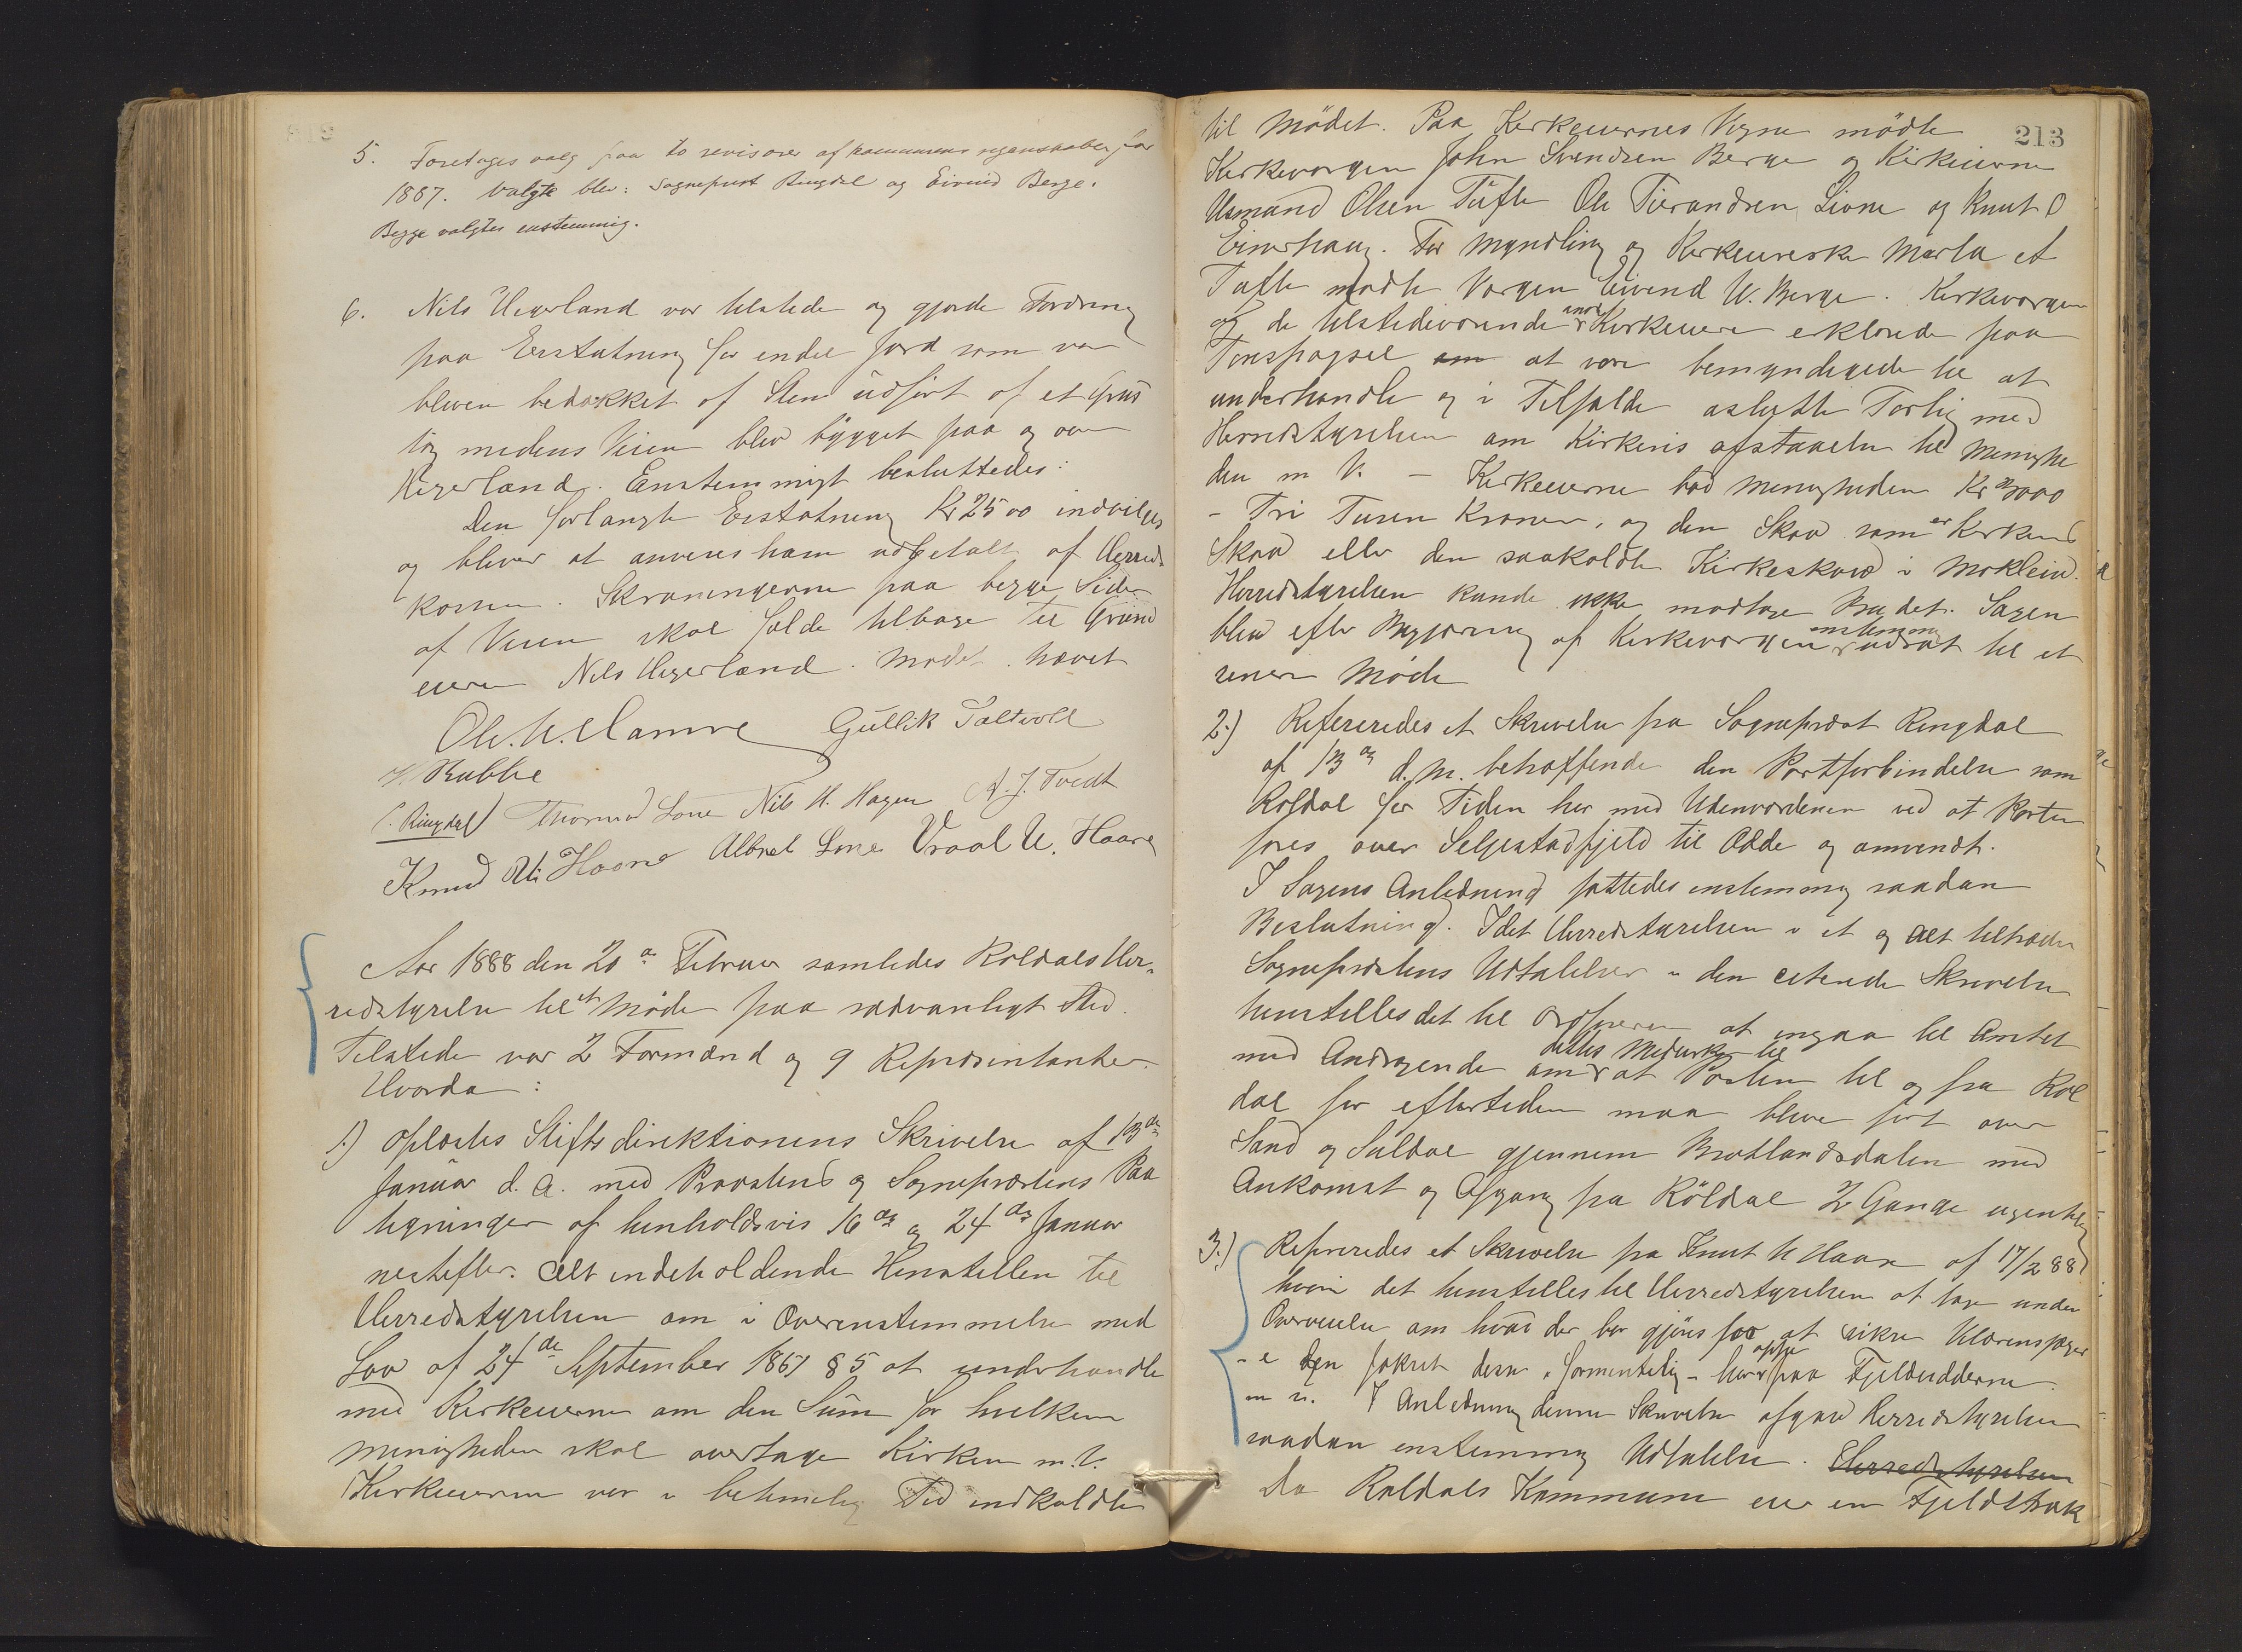 5. Foretages valg paa to revisorer af kommunens regnskaber for
1887. Valgte blev: Sogneprest Ringdal og Eivind Berge.
Begge valgtes enstemmig.
6. Nils Hegerland var tilstede og gjorde Fordring
paa Erstatning for endel Jord som var
bleven bedækket af Sten udført af et Grus
tag medens Veien blev bygget paa og over
Hegerland. Enstemmigt besluttedes:
Den forlangte Erstatning Kr 25 00 indvilges
og bliver at anvises ham udbetalt af Herreds
kassen. Skraaningerne paa begge Sider
af Veien skal falde tilbage til Grund
eieren Nils Hegerland. Mødet hævet
Ole. H. Hamre Gullik Saltvold
H Rabbe
C. Ringdal Thormod Lone Nils H. Hagen A. J. Tvedt
Knud Haare Albret Lone Vraal U. Haare
Aar 1888 den 20de Februar samledes Røldals Her-
redstyrelse til et Møde paa sædvanligt Sted.
Tilstede var 2 Formænd og 9 Repræsentanter.
Hvorda:
1.) Oplæstes Stiftsdirektionens Skrivelse af 13de
Januar d. A. med Provstens og Sogneprestens Paa
tegninger af henholdsvis 16de og 24de Januar
nestefter. Alt indeholdende Henstillen til
Herredstyrelsen om i Overenstemmelse med
Lov af 24de September 1867 § 5 at underhandle
med Kirkeeierne om den Sum for hvilken
Menigheden skal overtage Kirken m. v.
Kirkeeierne var i betimelig Tid indkaldte
213
til Mødet. Paa Kirkeeiernes Vegne mødte
Kirkevergen John Svendsen Berge og Kirkeeierne
Asmund Olsen Tufte Ole Tierandsen Lione og Knut O
Einerhaug. For Myndling og Kirkeeierske Marta
Tufte mødte Vergen Eivend W. Berge. Kirkevergen
og de tilstedeværende andre Kirkeeiere erklærede paa
Forespørgsel om at være bemyndigede til at
underhandle og i Tilfælde aslutte Forlig med
Herredstyrelsen om Kirkens afstaaelse til Menighe
den m v. – Kirkeeierne bød Menigheden Kr 3000
– Tri Tusen Kroner, og den Skov som er Kirkens
Skov eller den saakaldte Kirkeskov i Moklein.
Herredstyrelsen kunde ikke modtage Budet. Sagen
blev efter Begjæring af Kirkevergen enstemmig udsat til et
senere Møde
2.) Refereredes et Skrivelse fra Sogneprest Ringdal
af 13de d. M. betræffende den Postforbindelse som
Røldal for Tiden har med Udenverdenen ved at Posten
føres over Seljestadfjeld til Odde og omvendt.
I Sagens Anledning fattedes enstemmig saadan
Beslutning. Idet Herredstyrelsen i et og alt tiltræder
Sogneprestens Udtalelser i den citerede Skrivelse
henstilles det til Ordføreren at ingaa til Amtet
med Andragende om dettes Medvirken til at Posten til og fra Røl
dal for eftertiden maa blive ført over
Sand og Suldal gjennem Bratlandsdalen med
Ankomst og Afgang fra Røldal 2 Gange ugentlig
3.) Refereredes et Skrivelse fra Knut H Haare af 17/2 88
hvori det henstilles til Herredstyrelsen at tage under
Overveielse om hvad der bør gjøres for at sikre
den forment­lig oppe paa Fjeldvidderne
m v. I Anledning denne Skrivelse afgav Herredstyrelsen
saadan enstemmig Udtalelse. Herredstyrelsen
Da Røldals Kommune eier en Fjeldstræk